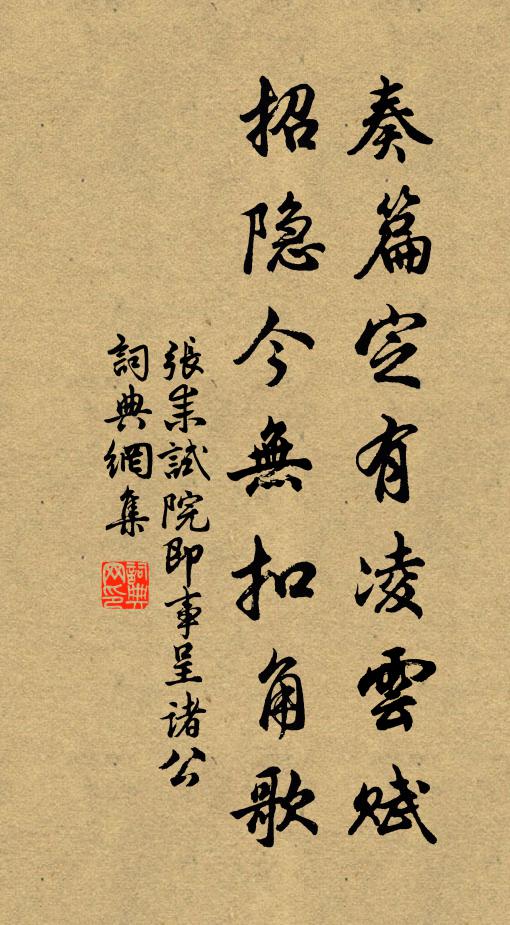 奏篇定有凌雲賦
招隐今無扣角歌
張耒試院即事呈諸公
詞典網集
詞典网印